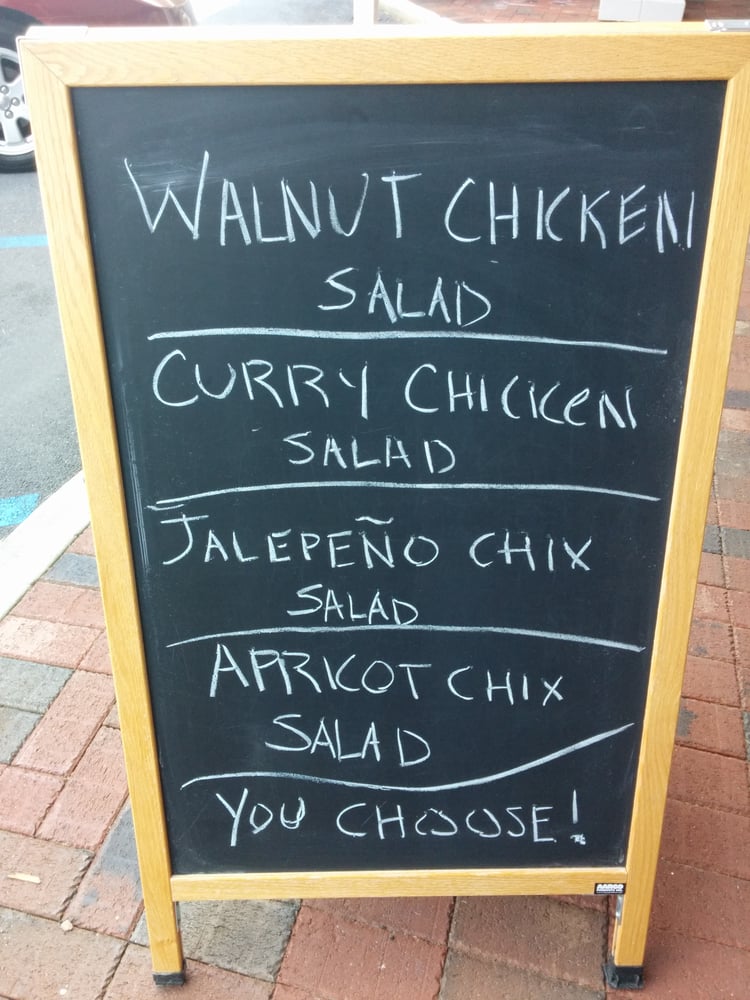 WALNUT CHICKEN
SALAD
CURRY CHICKEN
SALAD
JALEPEÑO CHIX
SALAD
APRICOT CHIX
SALAD
YOU CHOOSE!
AARCO